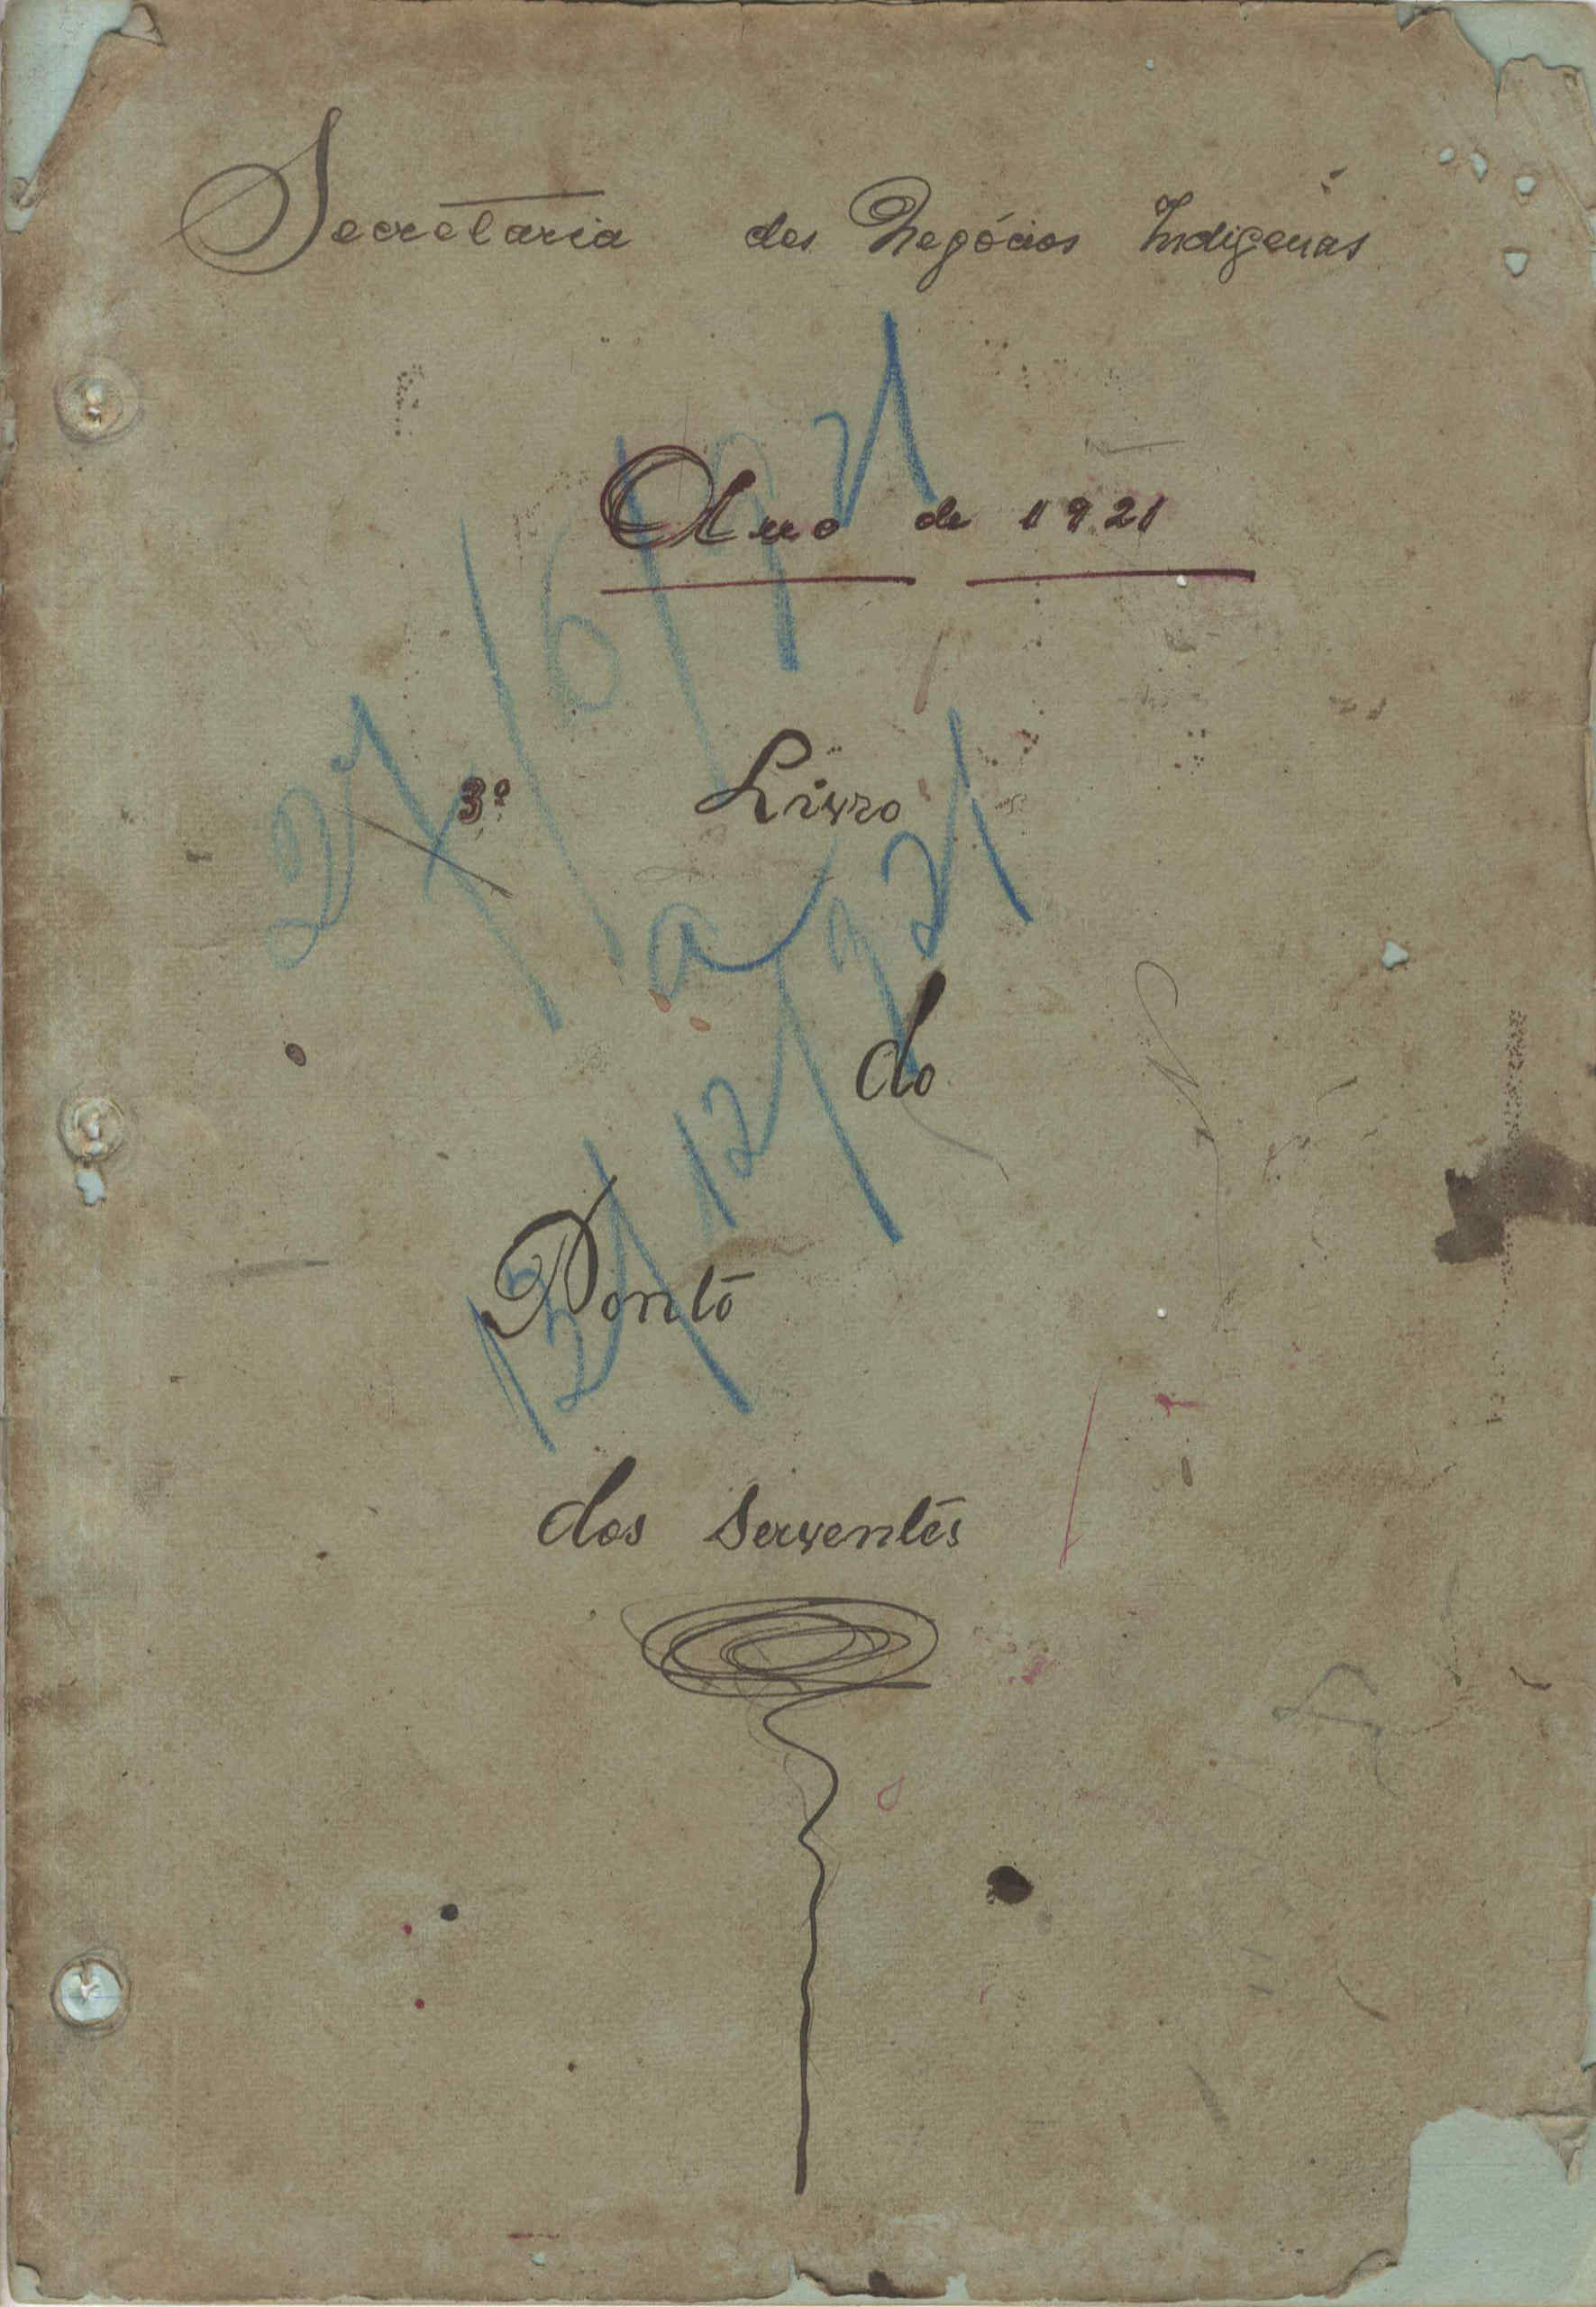 Secretaria dos Negócios Indigenas
Ano de 1921
27/6/921
3º Livro
a
do
12/921
Ponto
dos Serventes